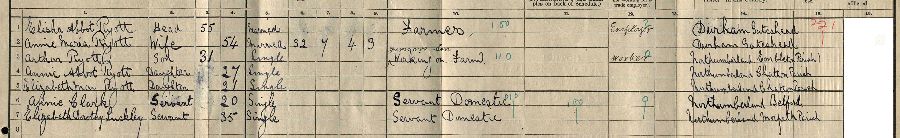 plan on back of Schedule.) trade employer.
1 Elisha Abbot Ryott Head 55 Married Farmer 150 Employer Durham Gateshead
2 Annie Maria Ryott Wife 54 Married 32 7 4 3 Durham Gateshead
3 Arthur Ryott Son 31 Single Working on Farm 110 Worker Northumberland Embleton Parish
4 Annie Abbot Ryott Daughter 27 Single Northumberland Parish
5 Elizabeth Ryott Daughter 21 Single Northumberland Parish
6 Annie Clark Servant 20 Single Servant Domestic Northumberland Belford
7 Elizabeth Luckley Servant 35 Single Servant Domestic Northumberland Parish
8